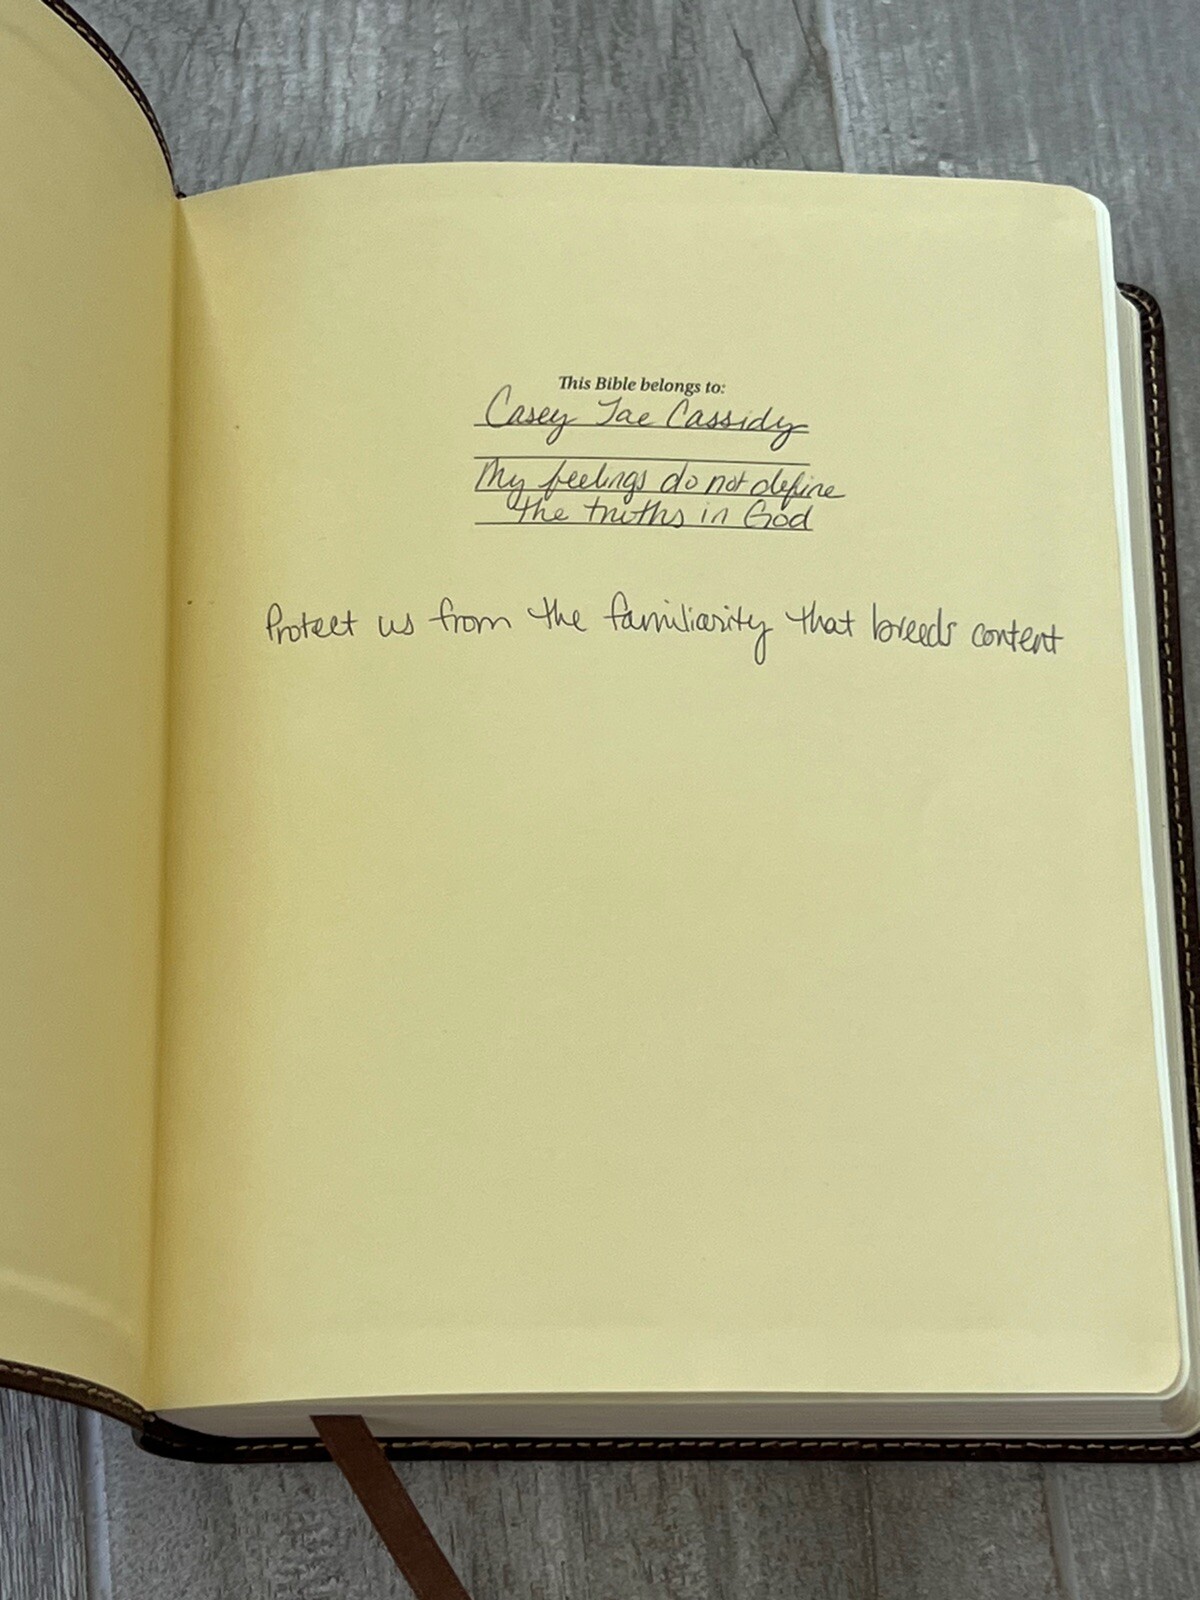 This Bible belongs to:
Casey Jae Cassidy
My feelings do not define
the truths in God
Protect us from the familiarity that breeds content